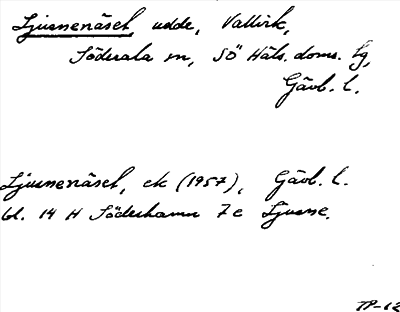 Ljusnenäset, udde, Vallvik,
Söderala sn, SÖ Häls. doms. tg,
Gävb. l.
Ljusnenäset, ek (1957), Gävb. l.
bl. 14 H Söderhamn 7e Ljusne.